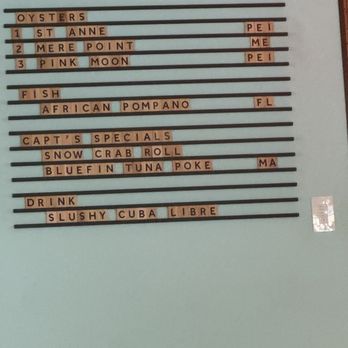 OYSTERS
1 ST ANNE PEI
2 MERE POINT ME
3 PINK MOON PEI
FISH
AFRICAN POMPANO FL
CAPT'S SPECIALS
SNOW CRAB ROLL
BLUEFIN TUNA POKE MA
DRINK
SLUSHY CUBA LIBRE